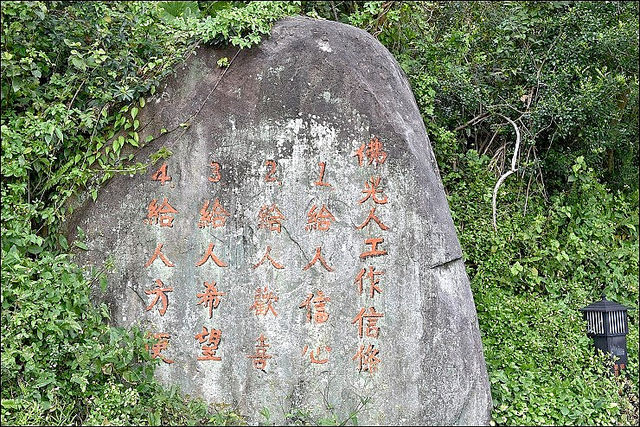 佛光人工作信條
1給人信心
2給人歡喜
3給人希望
4給人方便